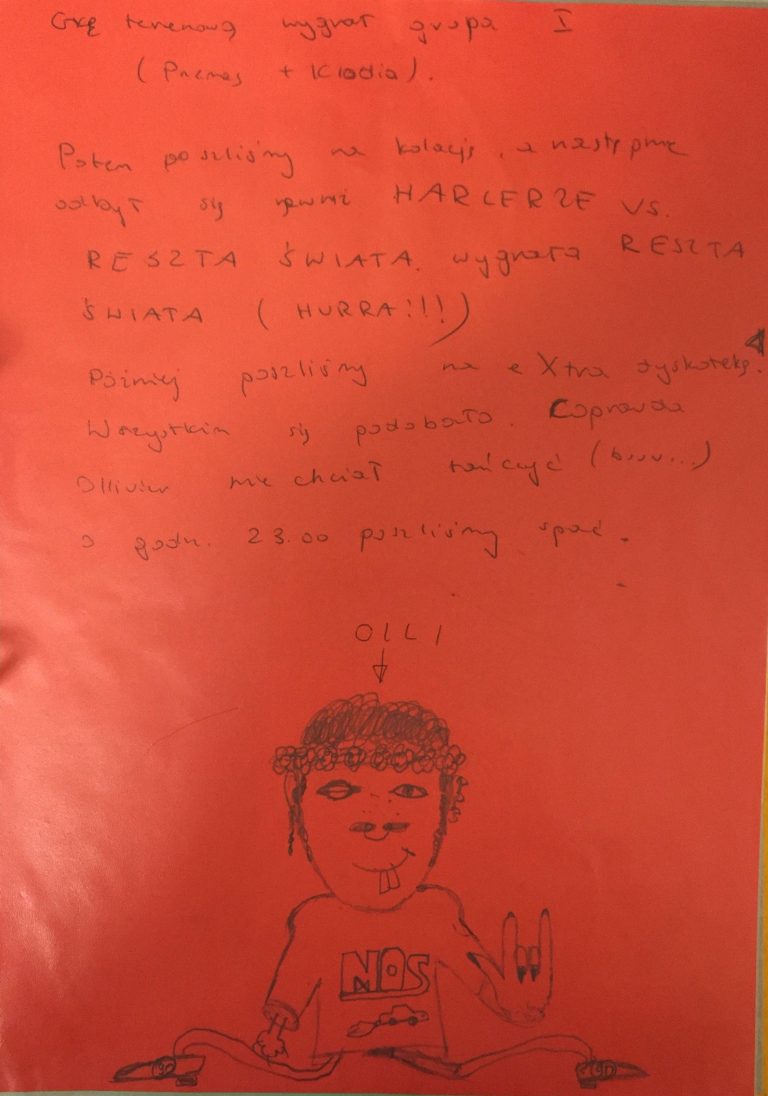 Grę terenową wygrał grupa I
( + Klodia).
Potem poszliśmy na kolację, a następnie
odbył się HARCERZE VS.
RESZTA ŚWIATA. wygrała RESZTA
ŚWIATA ( HURRA!!!)
Później poszliśmy na eXtra dyskotekę.
Wszystkim się podobało. Coprawda
Ollivier nie chciał tańczyć (buuu...)
O godz. 23.00 poszliśmy spać.
OLLI
NOS